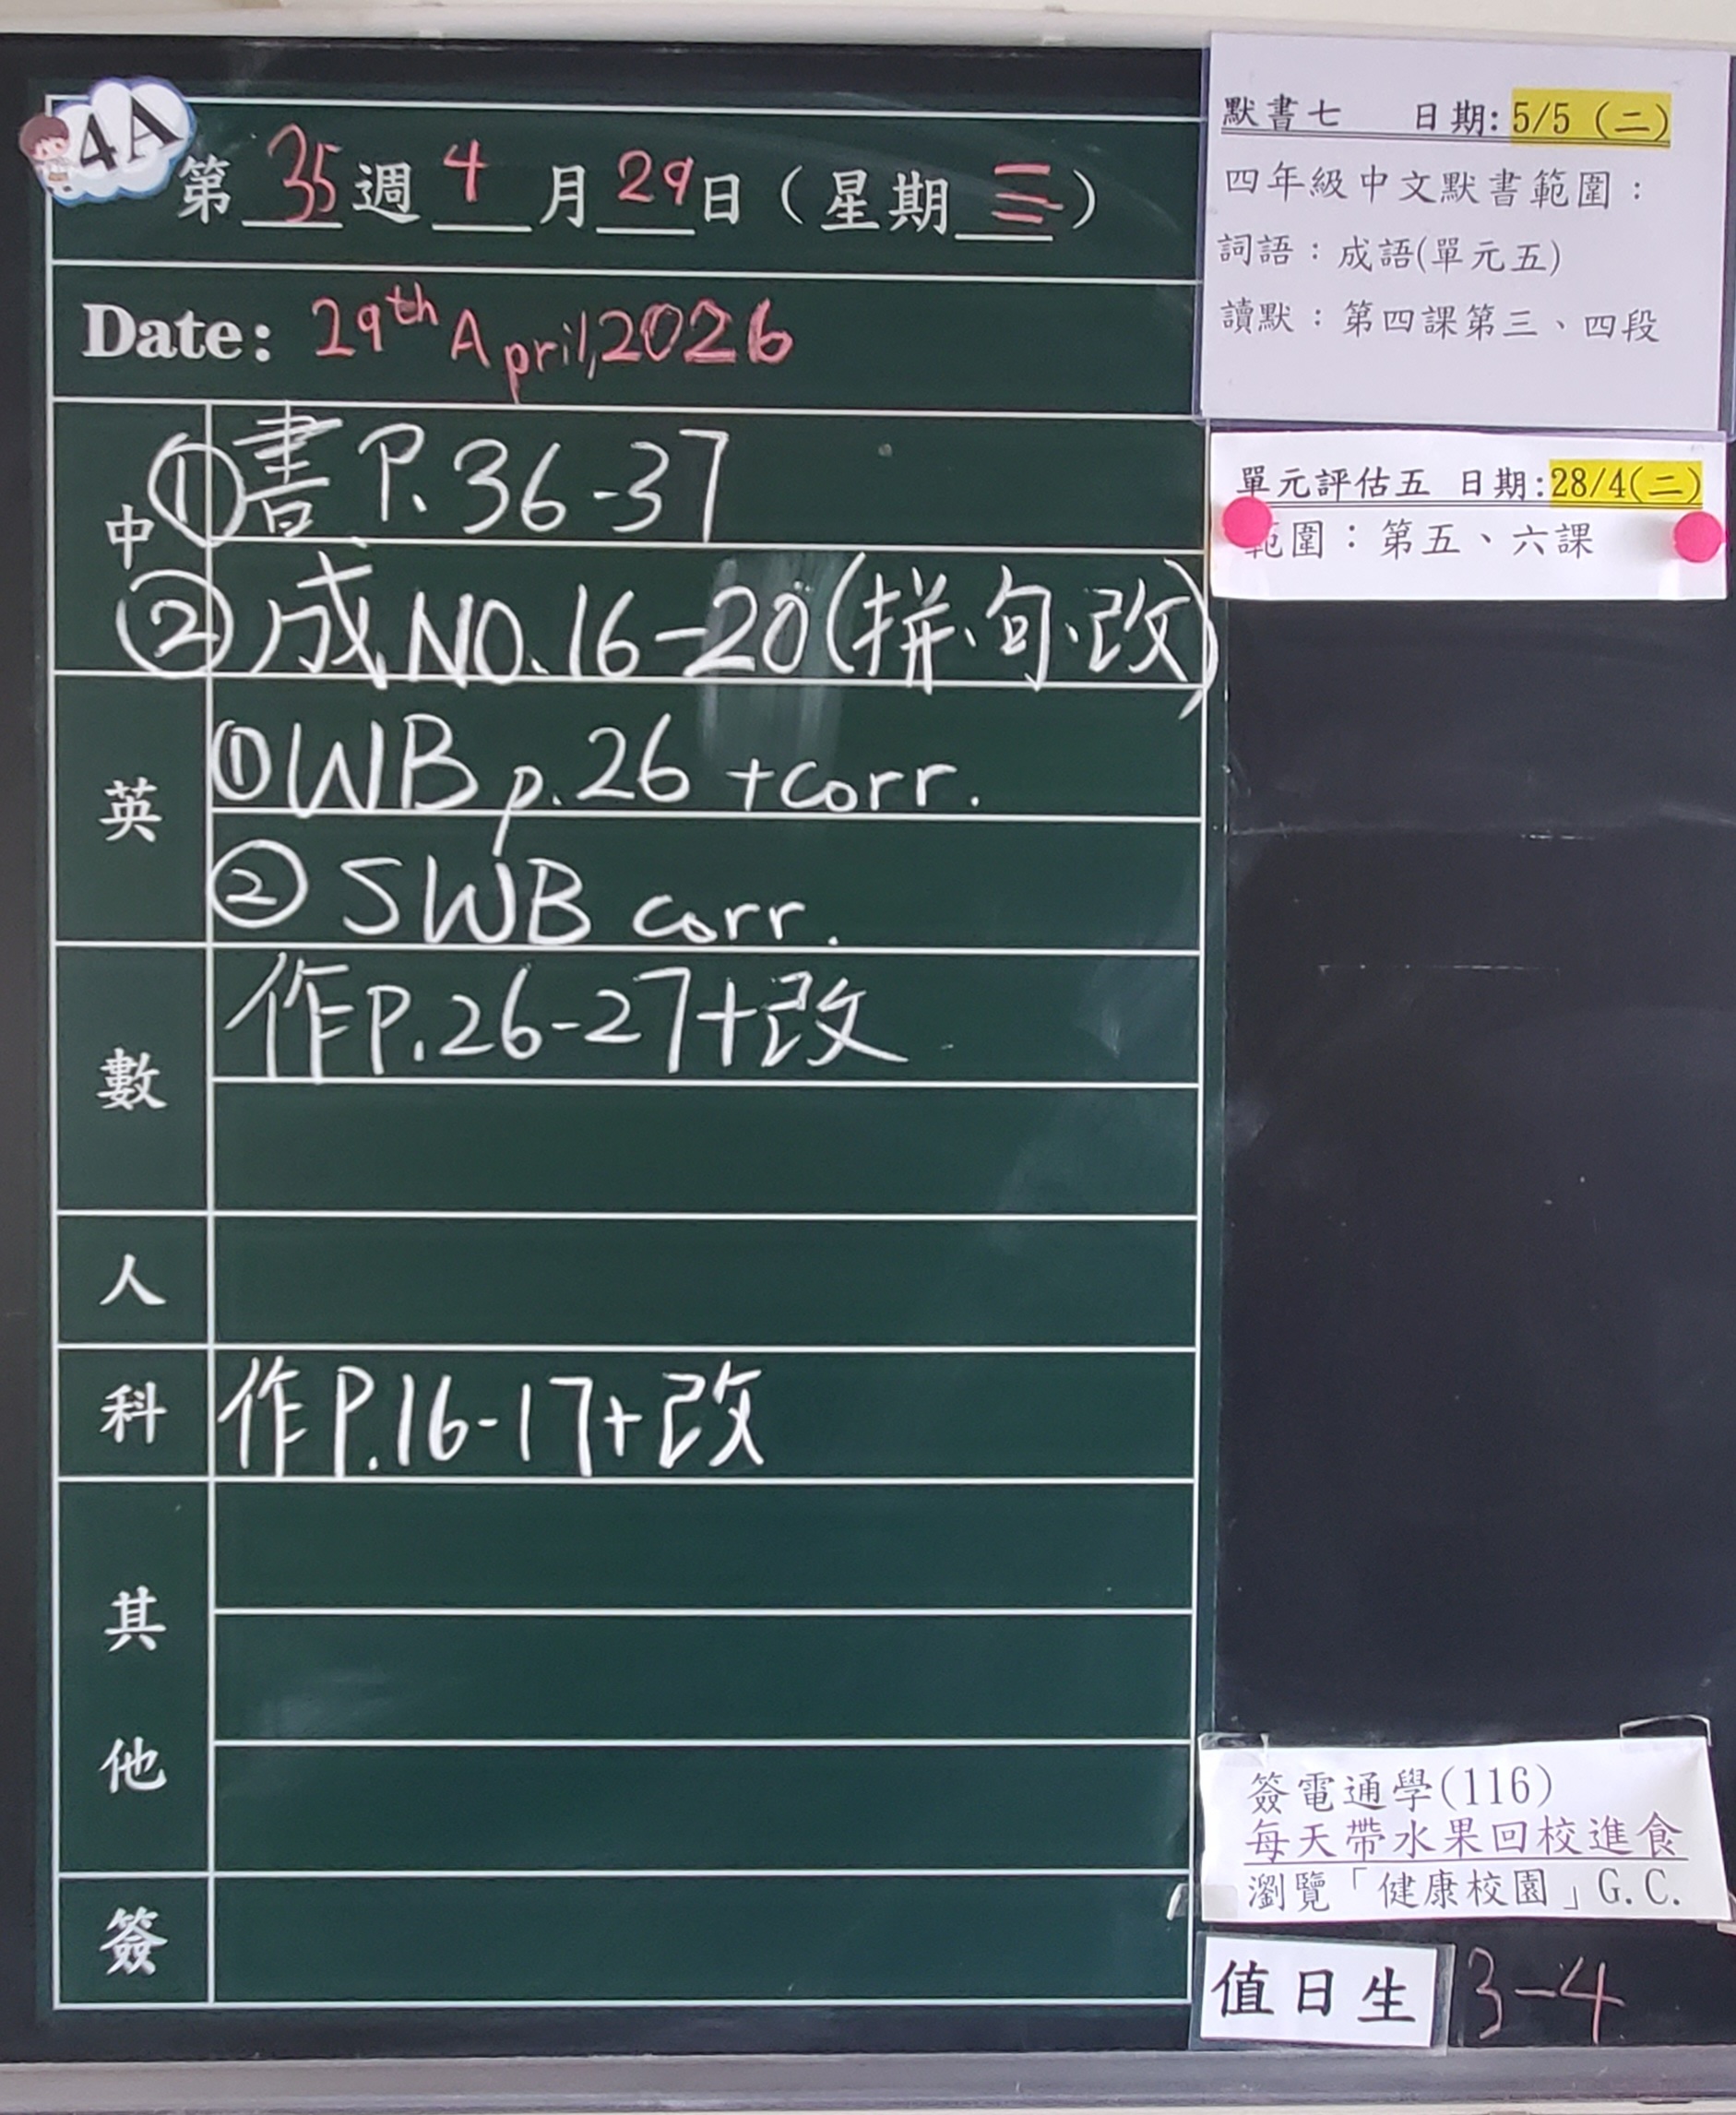 4A
第35週4月29日（星期三）
Date: 29th April, 2026
中
①書P.36-37
②成NO.16-20(拼、句、改)
英
①WB p.26 +corr.
②SWB corr.
數
作P.26-27+改
人
科
作P.16-17+改
其
他
簽
默書七 日期:5/5（二）
四年級中文默書範圍：
詞語：成語(單元五)
讀默：第四課第三、四段
單元評估五 日期:28/4(二)
範圍：第五、六課
簽電通學(116)
每天帶水果回校進食
瀏覽「健康校園」G.C.
值日生 3-4